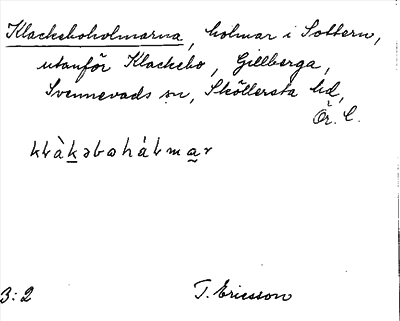 Klackeboholmarna, holmar i Sottern,
utanför Klackebo, Gillberga,
Svennevads sn, Sköllersta hd,
Ör. l.
3:2 T. Ericsson